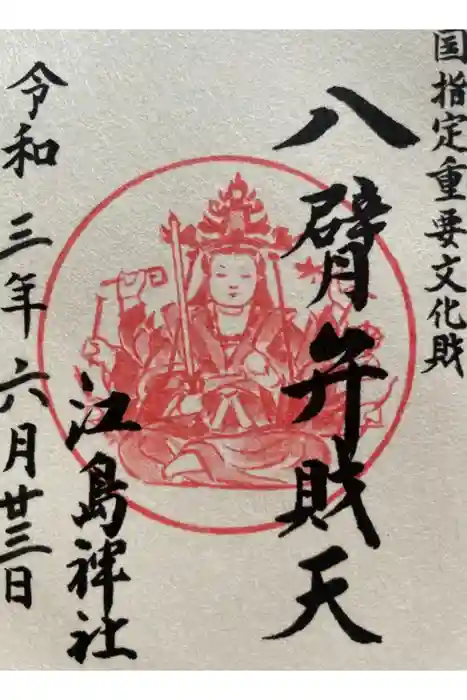 国指定重要文化財
八臂弁財天
江島神社
令和三年六月廿三日